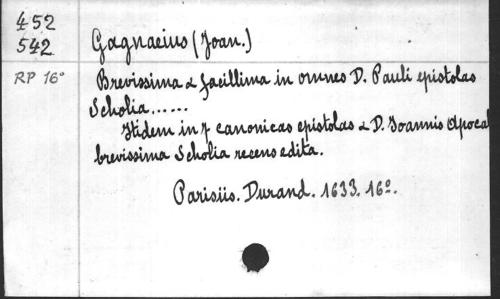 452
542
Gagnaeius (Joan.)
RP 16°
Brevissima & facillima in omnes D. Pauli epistolas
Scholia......
Itidem in 7 canonicas epistolas & D. Joannis Apocal
brevissima Scholia recens edita.
Parisiis. Durand. 1633. 16º.